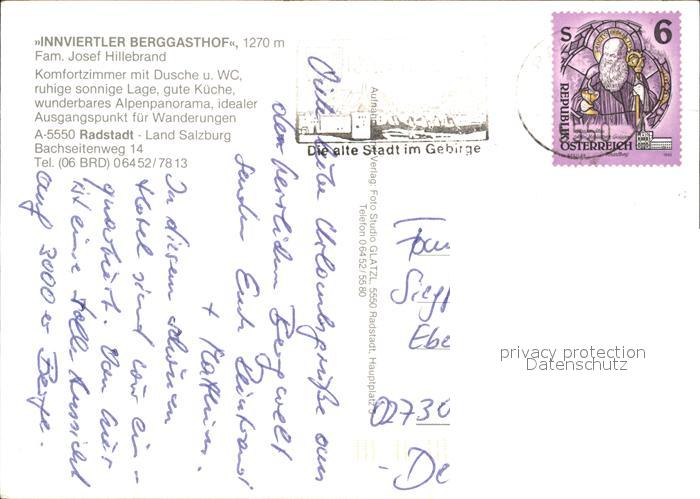 »INNVIERTLER BERGGASTHOF«, 1270 m
Fam. Josef Hillebrand
Komfortzimmer mit Dusche u. WC,
ruhige sonnige Lage, gute Küche,
wunderbares Alpenpanorama, idealer
Ausgangspunkt für Wanderungen
A-5550 Radstadt - Land Salzburg
Bachseitenweg 14
Tel. (06 BRD) 06452/7813
Die alte Stadt im Gebirge
S 6
REPUBLIK
ÖSTERREICH
Viele liebe Urlaubsgrüße aus
der herrlichen Bergwelt
senden Euch
+ Kathrin.
In diesem schönen
Hotel sind wir ein-
quartiert. Von hier
ist eine tolle Aussicht
auf 3000er Berge.
Verlag: Foto Studio GLATZL, 5550 Radstadt, Hauptplatz
Telefon 06452/5580
Fam
Siegf
Ebe
02730
- De
privacy protection
Datenschutz